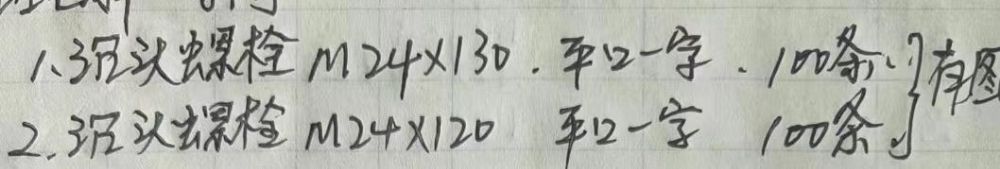 1、沉头螺栓 M24×130. 平口一字. 100条. } 有图
2.沉头螺栓 M24×120 平口一字 100条.